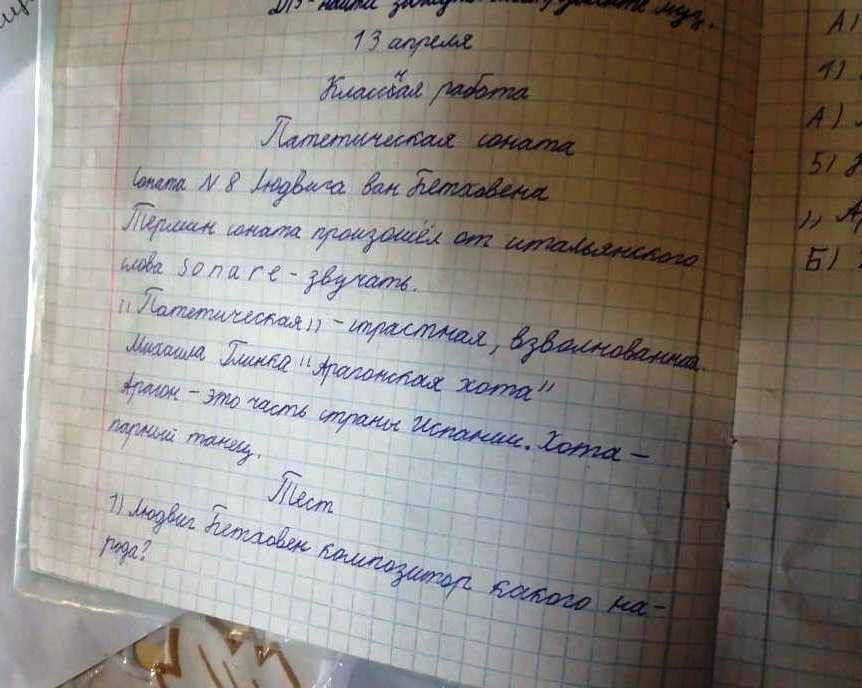 ДЗ - найти
13 апреля
Классная работа
Патетическая соната
Соната N 8 Людвига ван Бетховена
Термин соната произошёл от итальянского
слова sonare - звучать.
"Патетическая" - страстная, взволнованная.
Михаила Глинка "Арагонская хота"
Арагон - это часть страны Испании. Хота -
парный танец.
Тест
1) Людвиг Бетховен композитор какого на-
рода?
А)
1)
А)
Б)
Б)